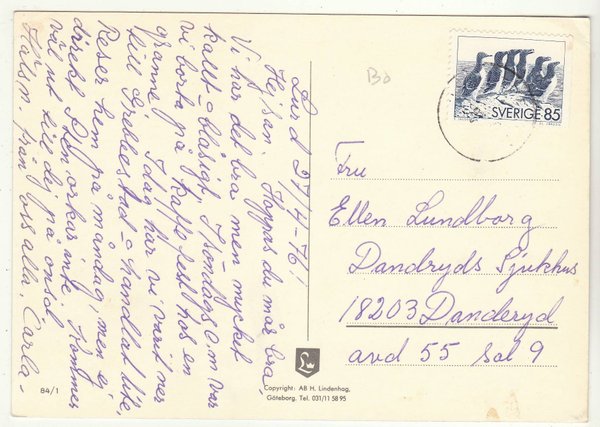 Lurd 27/4-76!
Hejsan. Hoppas du mår bra,
Vi har det bra men mycket
kallt - blåsigt, Söndags e.m var
vi borta på kaffe fest hos en
granne. I dag har vi varit ner
till Grebbestad - handlat lite,
Reser hem på måndag, men ej
direkt Dden orkar inte. Kommer
väl ut till dej på onsd.
Hälsn. från oss alla. Carla.
84/1
Bo
SVERIGE 85
Fru
Ellen Lundborg
Dandryds Sjukhus
18203 Danderyd
avd 55 sal 9
Copyright: AB H. Lindenhag,
Göteborg, Tel. 031/11 58 95